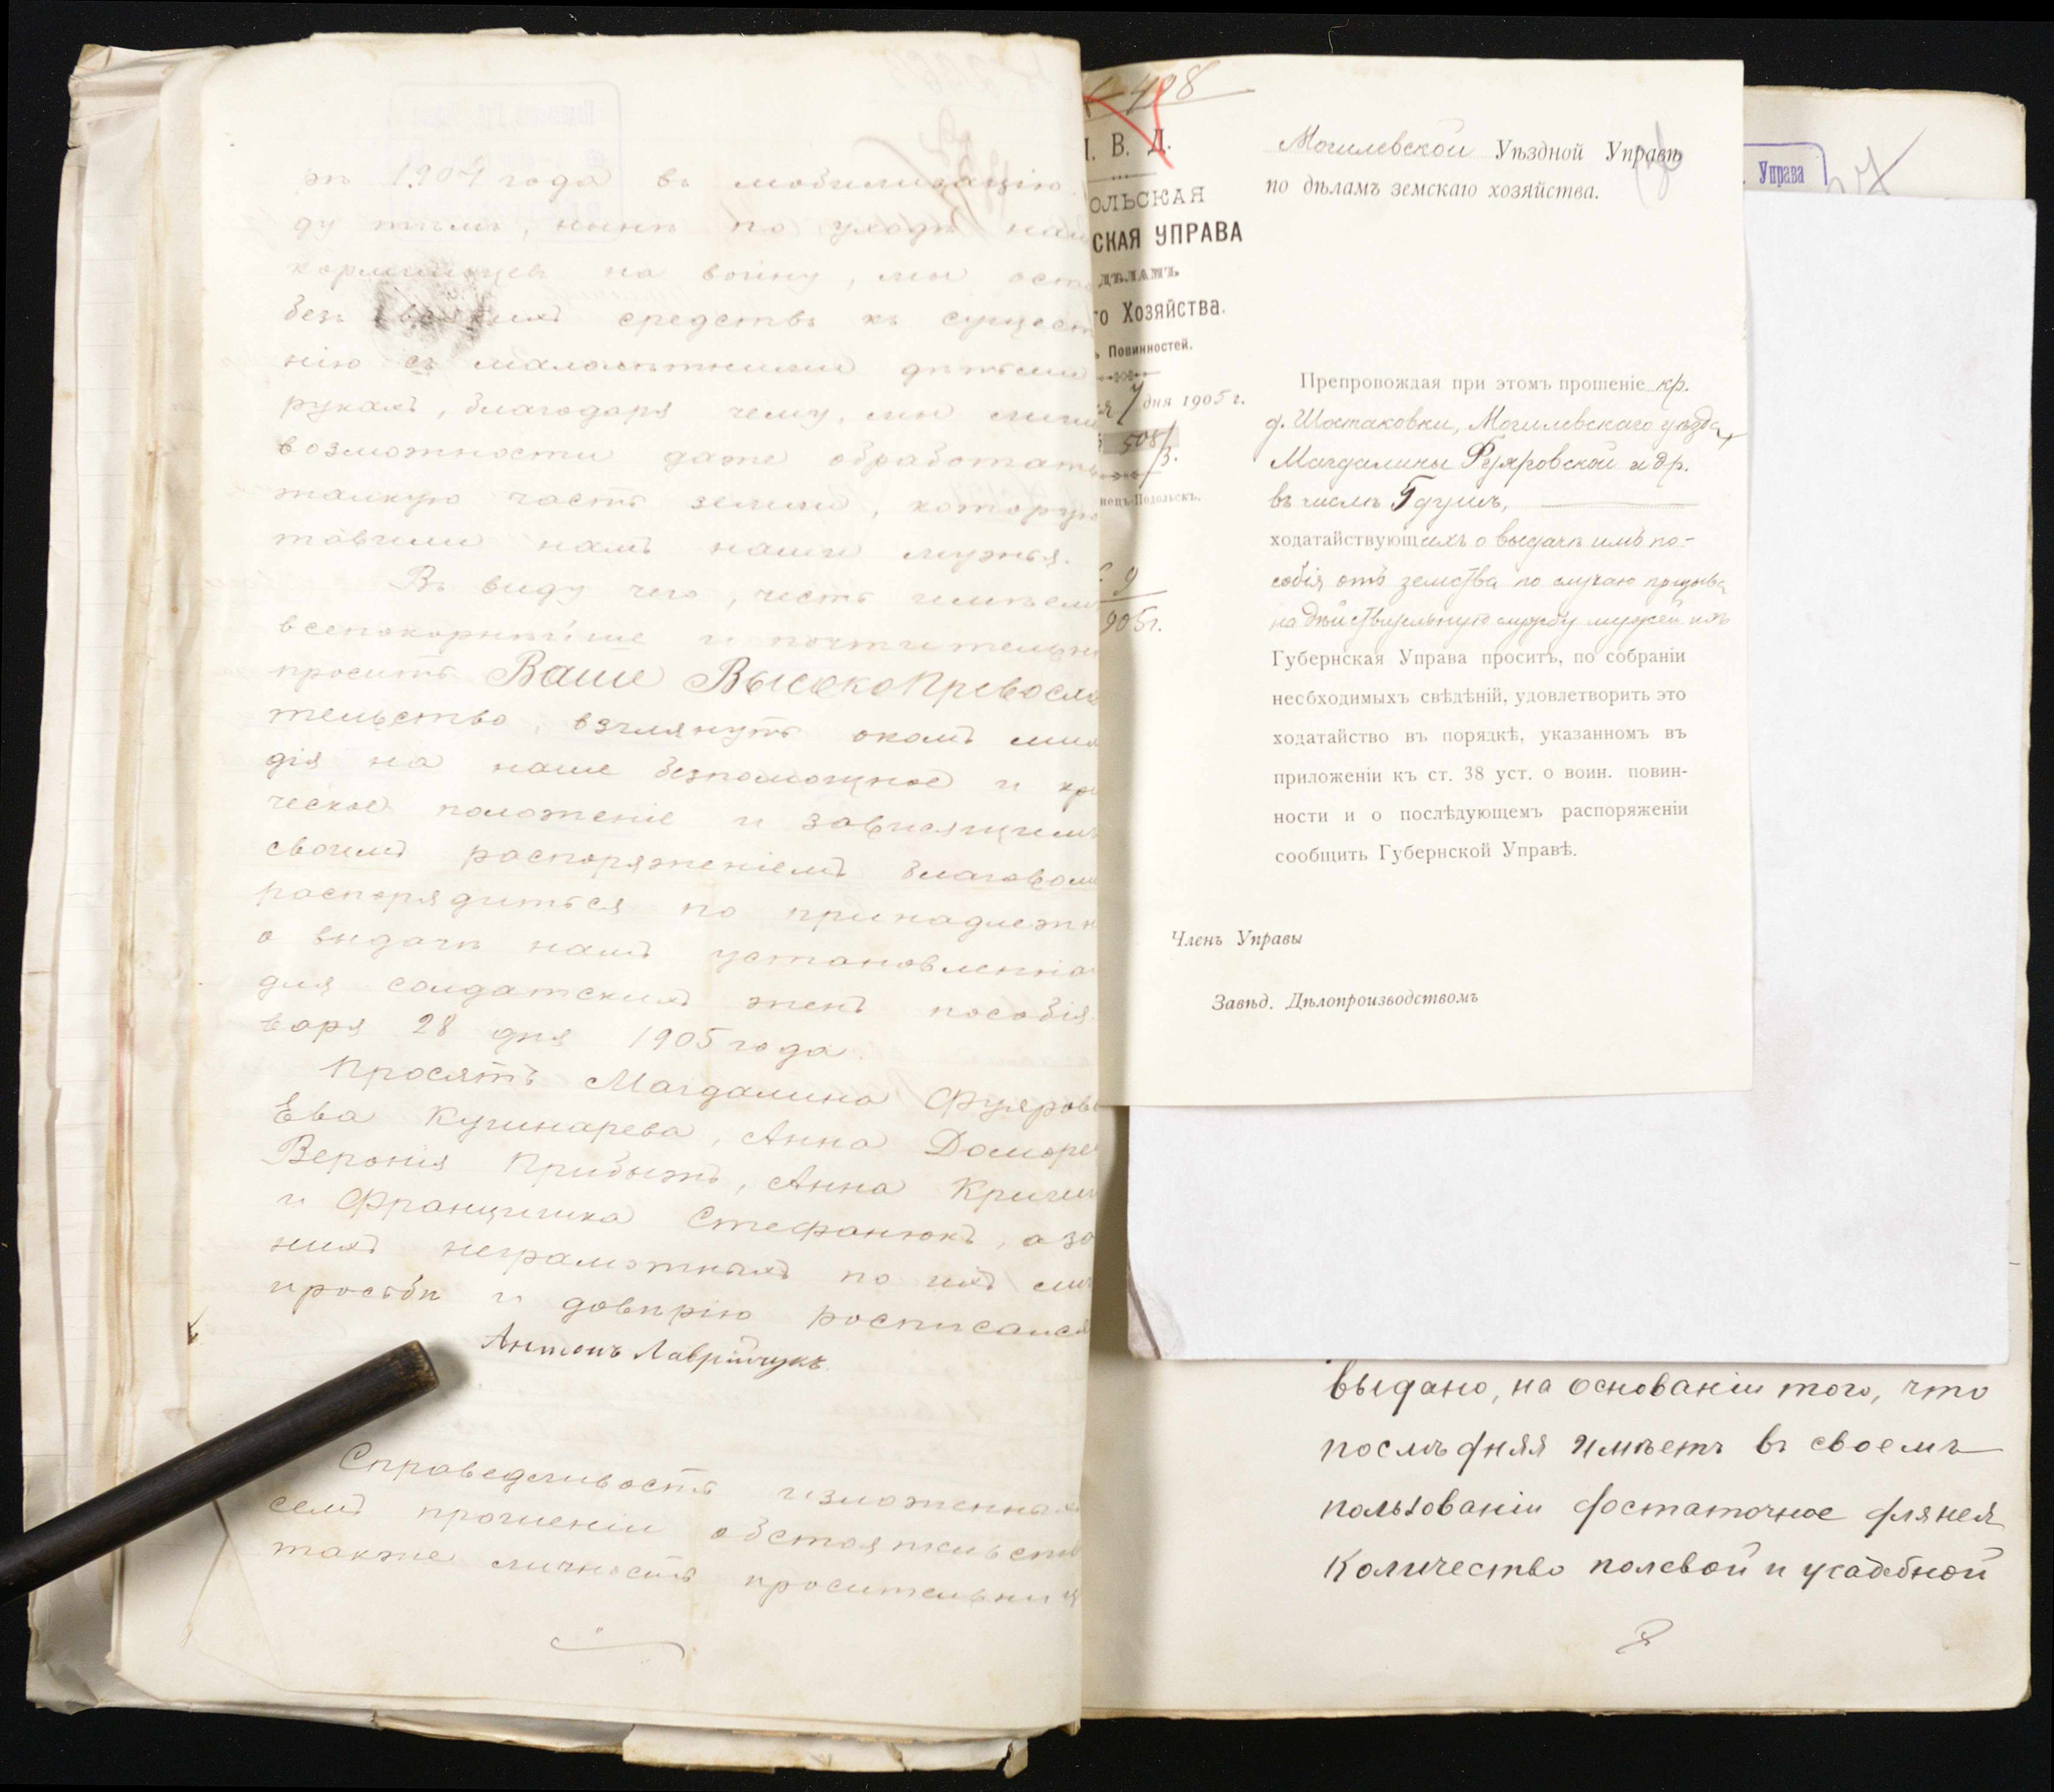 рѣ 1904 года въ мобилизацію
ду тѣмъ, нынѣ по уходѣ
кормильцевъ на войну, мы
безъ всякихъ средствъ къ сущест
нію съ малолѣтними дѣтьми
рукахъ, благодаря чему, мы
возможности даже обработать
малкую часть земли, которую
тавили намъ наши мужья.
Въ виду чего, честь имѣемъ
всепокорнѣйше и почтительн
просить Ваше ВысокоПревосхо
тельство, взглянуть окомъ мил
дія на наше безпомощное и кри
ческое положеніе и зависящимъ
своимъ распоряженіемъ благовол
распорядиться по принадлежн
о выдачѣ намъ установленна
для солдатскихъ женъ пособія.
варя 28 дня 1905 года.
Просятъ Магдалина Фуяров
Ева Кушнарева, Анна Доморе
Веронія Прибыжъ, Анна
и Францишка Стефанюкъ, а за
нихъ неграмотныхъ по ихъ лич
просьбѣ и довѣрію росписался
Антонъ Лаврійчукъ.
Справедливость изложенныхъ
семъ прошеніи обстоятельств
также личность просительниц
498
. В. Д.
ОЛЬСКАЯ
СКАЯ УПРАВА
ДѢЛАМЪ
го Хозяйства.
ъ Повинностей.
7 дня 1905 г.
508/
3.
нецъ-Подольскъ.
9
905 г.
Могилевской Уѣздной Управѣ
по дѣламъ земскаго хозяйства.
Препровождая при этомъ прошеніе кр.
д. Шостаковки, Могилевскаго уѣзда,
Магдалины Фуяровской и др.
въ числѣ 5 душъ,
ходатайствующихъ о выдачѣ имъ по-
собія отъ земства по случаю призыва
на дѣйствительную службу мужей ихъ
Губернская Управа проситъ, по собраніи
несбходимыхъ свѣдѣній, удовлетворить это
ходатайство въ порядкѣ, указанномъ въ
приложеніи къ ст. 38 уст. о воин. повин-
ности и о послѣдующемъ распоряженіи
сообщить Губернской Управѣ.
Членъ Управы
Завѣд. Дѣлопроизводствомъ
. Управа
выдано, на основаніи того, что
послѣдняя имѣетъ въ своемъ
пользованіи достаточное для нея
количество полевой и усадебной